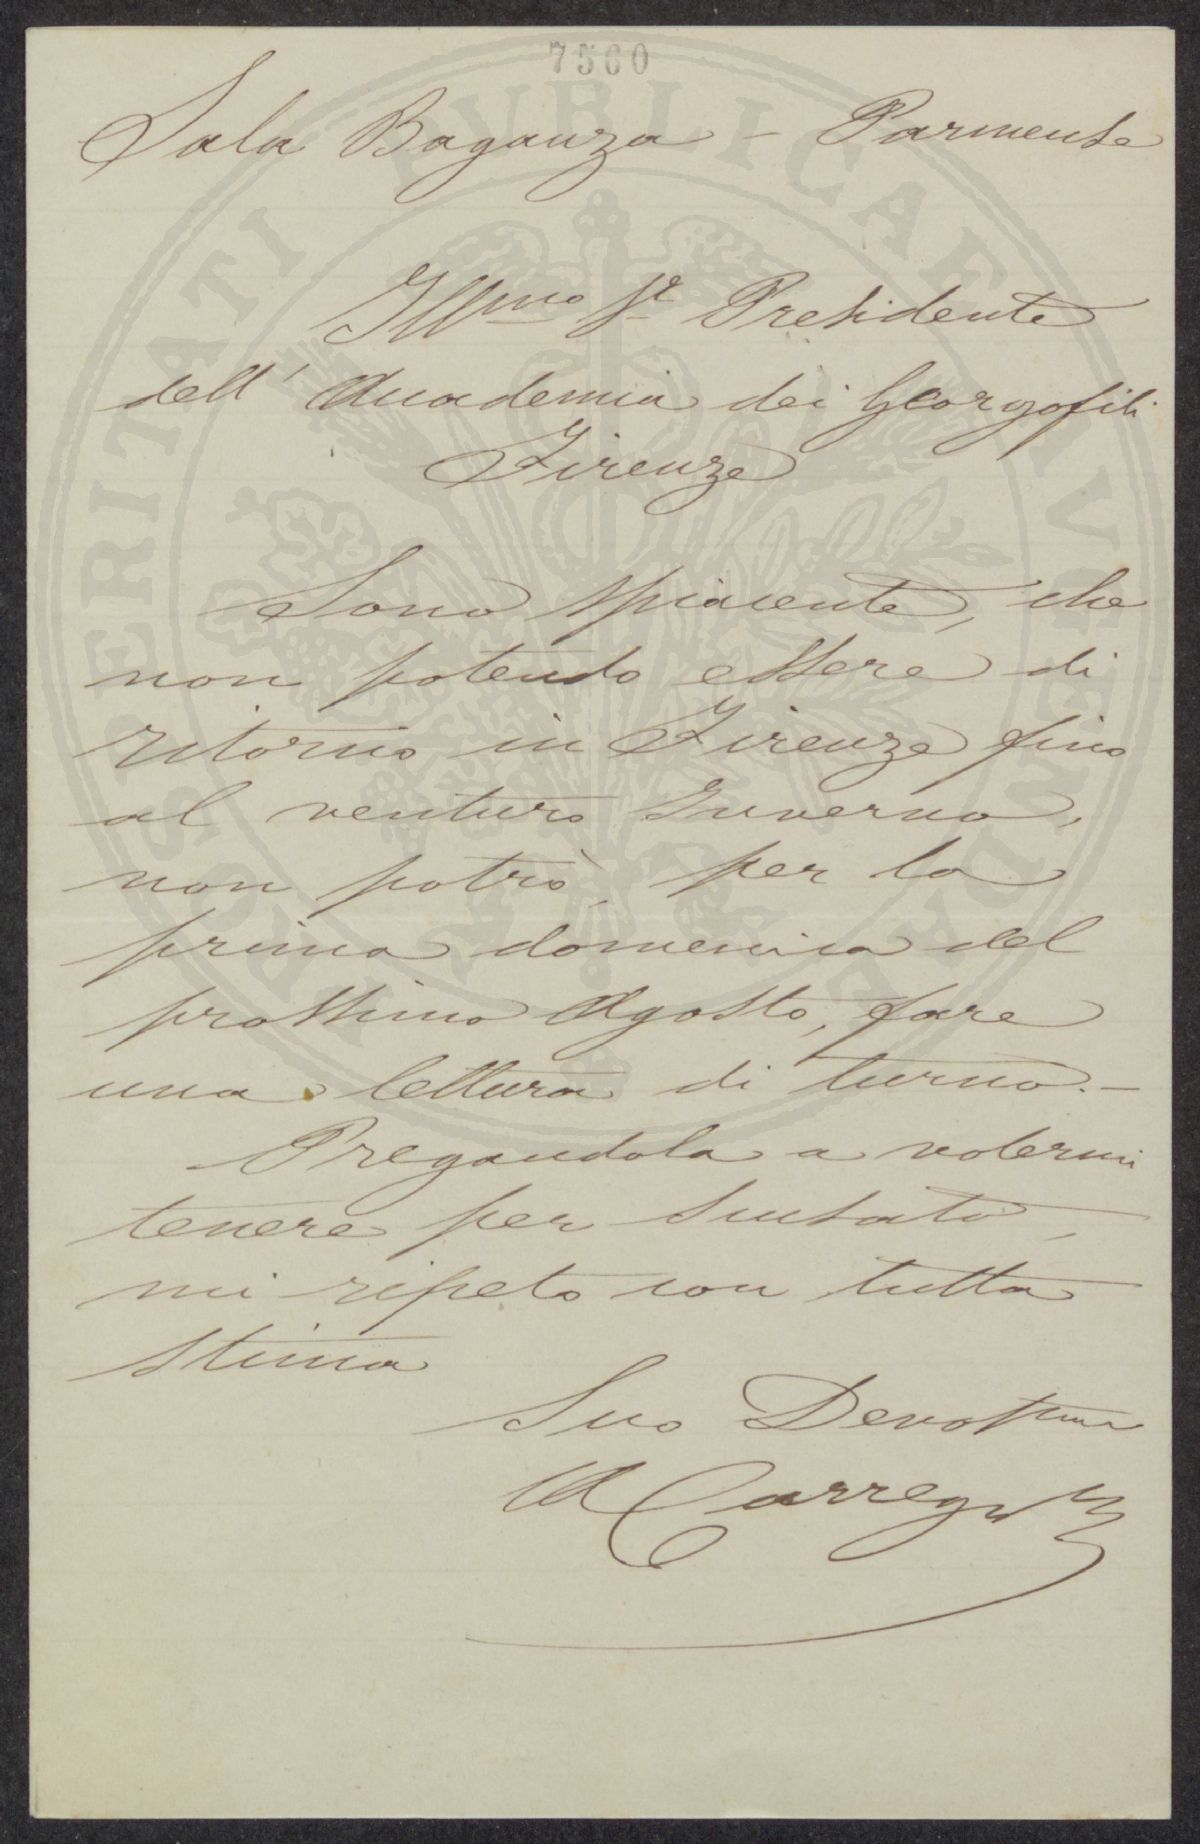 7560
Sala Baganza - Parmense
Illmo Sr Presidente
dell' Accademia dei Georgofili
Firenze
Sono spiacente, che
non potendo essere di
ritorno in Firenze fino
al venturo Inverno,
non potrò, per la
prima domenica del
prossimo Agosto, fare
una lettura di turno. -
Pregandola a volermi
tenere per scusato,
mi ripeto con tutta
stima
Suo Devotmo
A Carrega
PROSPERITATI PVBLICAE AVGENDAE